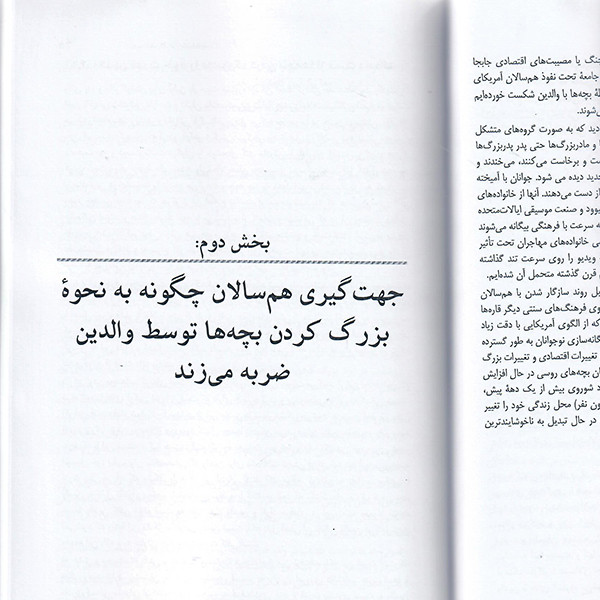 جنگ یا مصیبت‌های اقتصادی جابجا
جامعهٔ تحت نفوذ هم‌سالان آمریکای
بچه‌ها با والدین شکست خورده‌ایم
دید که به صورت گروه‌های متشکل
و مادربزرگ‌ها حتی پدر پدربزرگ‌ها
و برخاست می‌کنند، می‌خندند و
دیده می شود. جوانان با آمیخته
از دست می‌دهند. آنها از خانواده‌های
و صنعت موسیقی ایالات‌متحده
سرعت با فرهنگی بیگانه می‌شوند
خانواده‌های مهاجران تحت تأثیر
ویدیو را روی سرعت تند گذاشته
قرن گذشته متحمل آن شده‌ایم.
روند سازگار شدن با هم‌سالان
فرهنگ‌های سنتی دیگر قاره‌ها
که از الگوی آمریکایی با دقت زیاد
نوجوانان به طور گسترده
تغییرات اقتصادی و تغییرات بزرگ
بچه‌های روسی در حال افزایش
شوروی بیش از یک دههٔ پیش،
نفر) محل زندگی خود را تغییر
در حال تبدیل به ناخوشایندترین
بخش دوم:
جهت‌گیری هم‌سالان چگونه به نحوهٔ
بزرگ کردن بچه‌ها توسط والدین
ضربه می‌زند